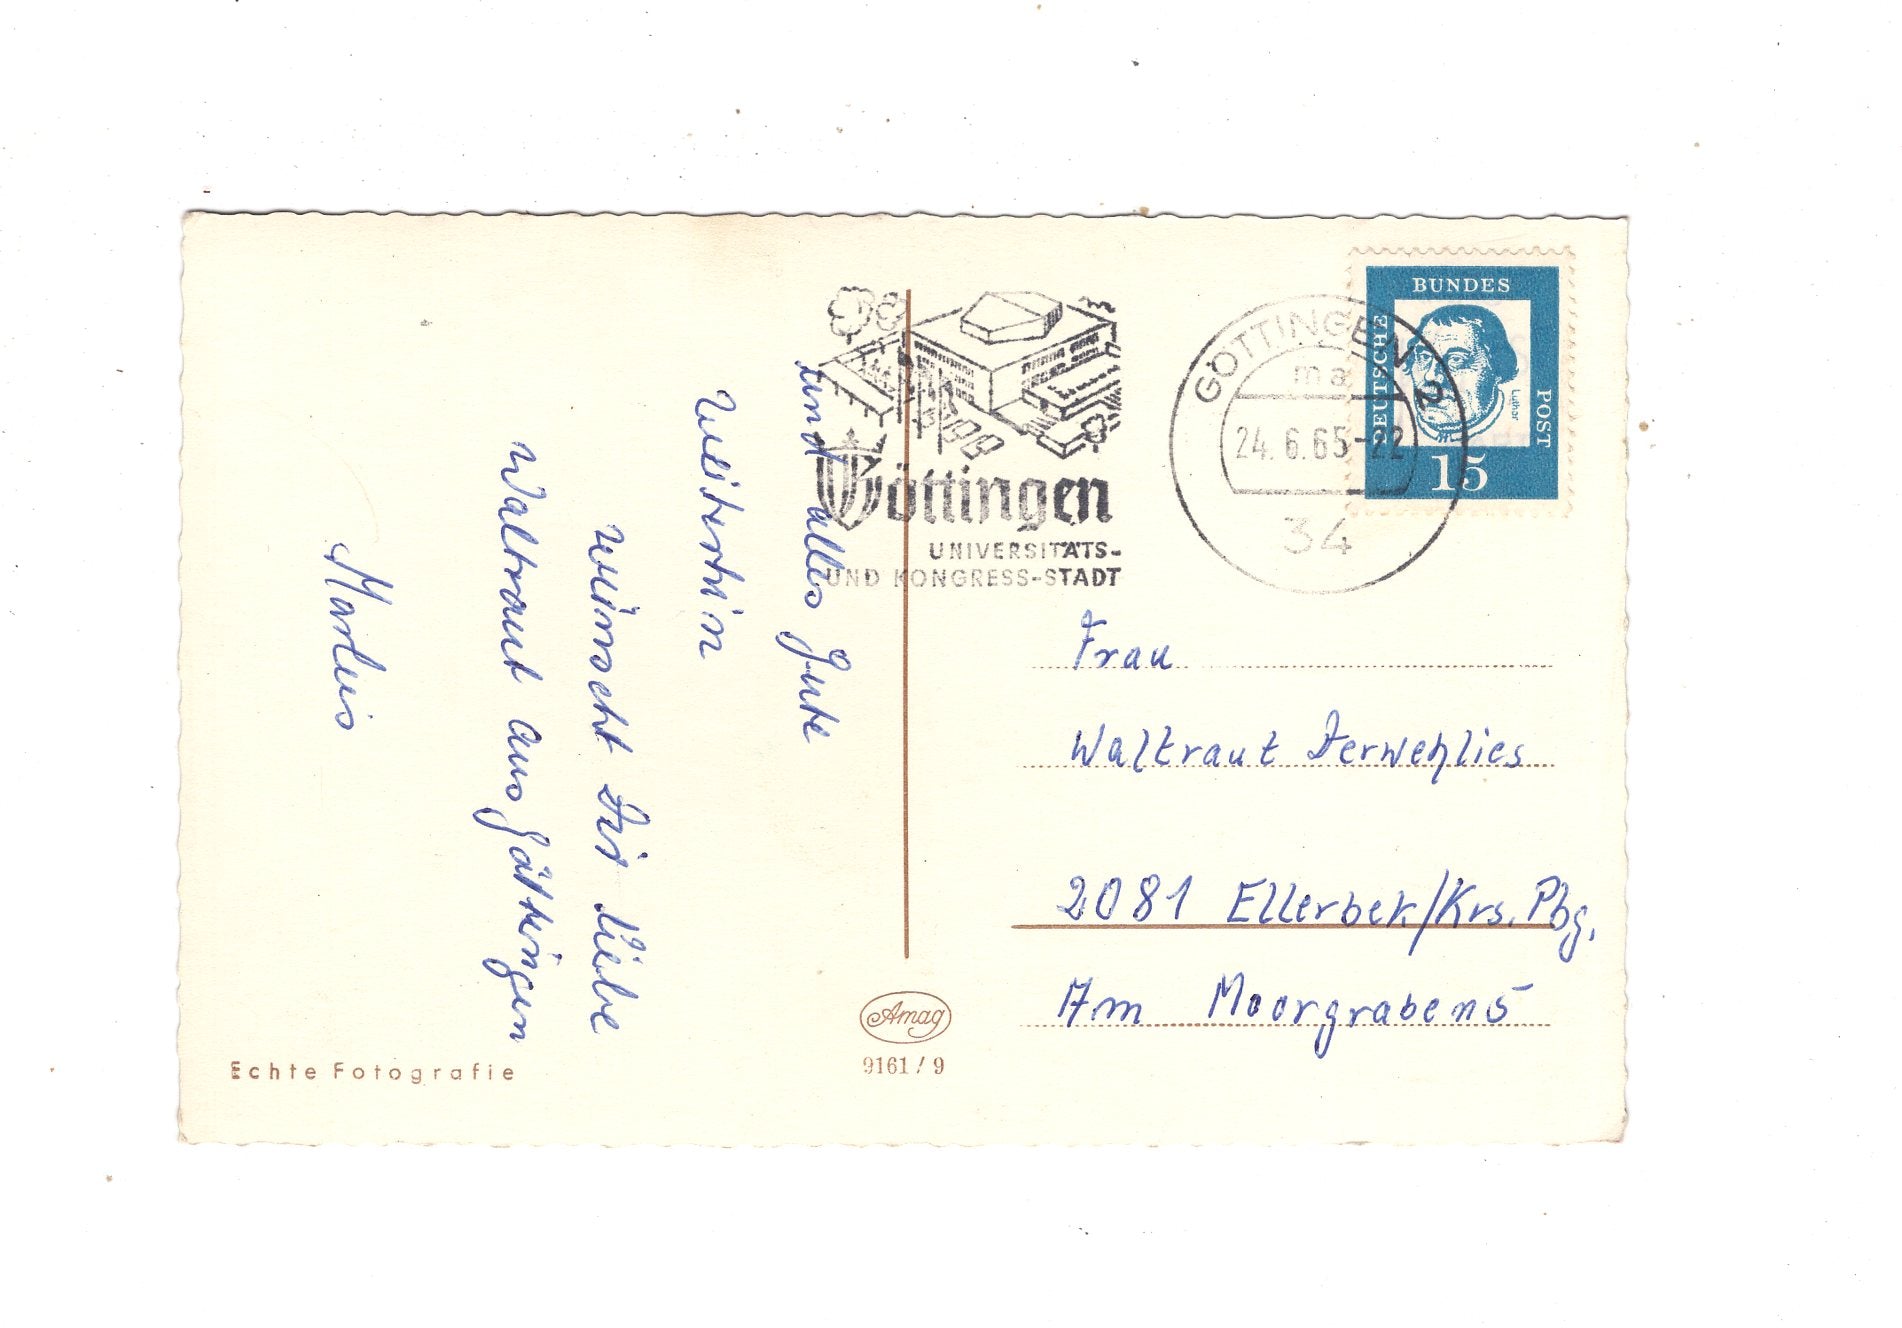 und alles Gute
weiterhin
wünscht Dir liebe
Waltraut aus Göttingen
Marlies
Echte Fotografie
Amag
9161/9
Göttingen
UNIVERSITÄTS-
UND KONGRESS-STADT
GÖTTINGEN 2
ma
24.6.65-22
34
DEUTSCHE
BUNDES
POST
Luther
15
Frau
Waltraut
2081 Ellerbek/Krs. Pbg.
Am Moorgraben 5